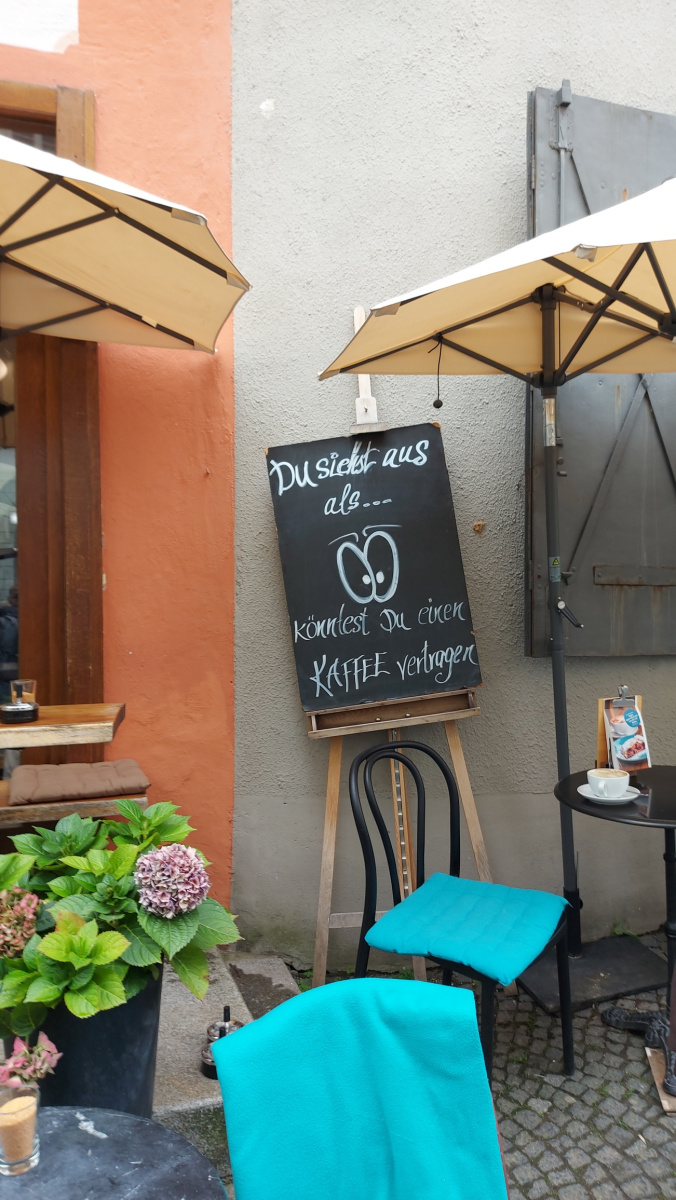 Du siehst aus
als...
könntest Du einen
KAFFEE vertragen